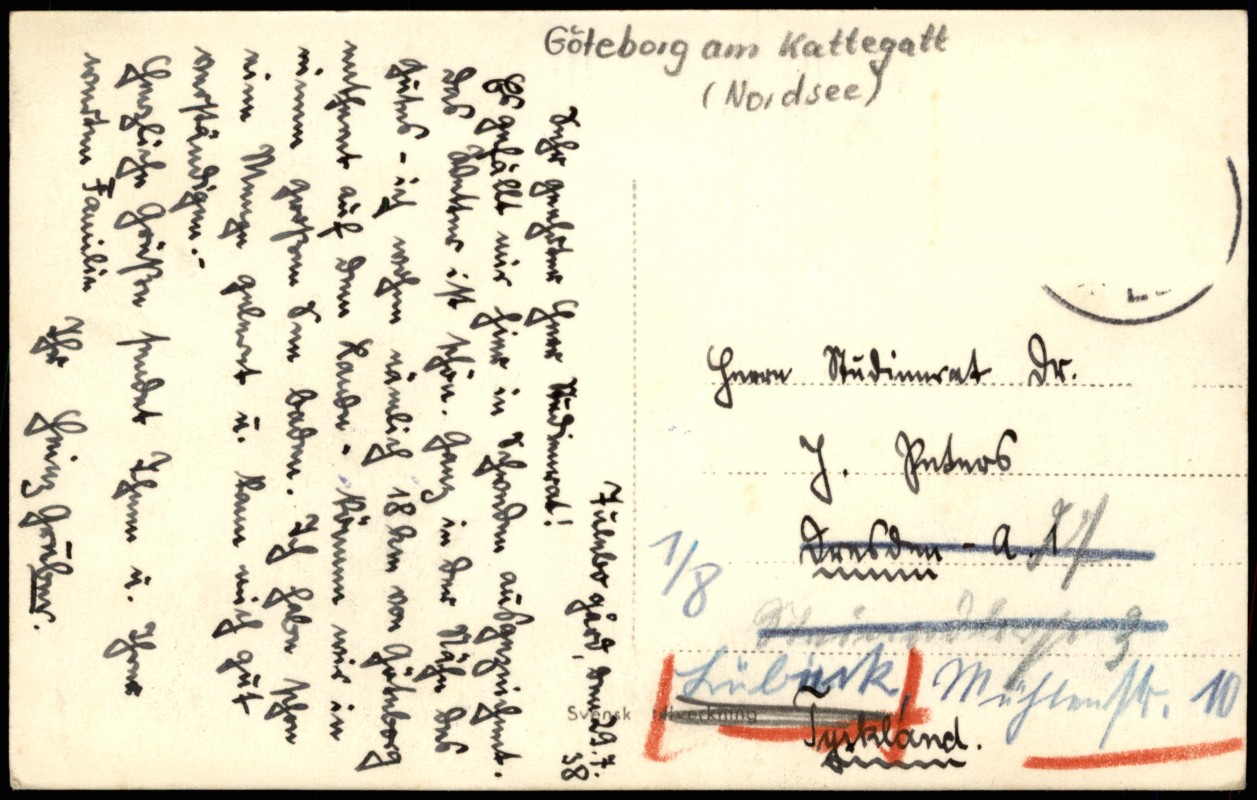 Göteborg am Kattegatt
(Nordsee)
Fulebo gård, den 29.7.
38
Sehr geehrter Herr Studienrat!
Es gefällt mir hier in Schweden ausgezeichnet.
Das Wetter ist schön. Ganz in der Nähe des
Gutes - ich wohne nämlich 18 km von Göteborg
entfernt auf dem Lande - können wir in
einem großen See baden. Ich habe schon
eine Menge gelernt u. kann mich gut
verständigen.-
Herzliche Grüße sendet Ihnen u. Ihrer
werten Familie
Ihr Heinz
Herrn Studienrat Dr.
J. Peters
Dresden - A. 1
1/8
Lübeck, Mühlenstr. 10
Svensk tillverkning
Tyskland.